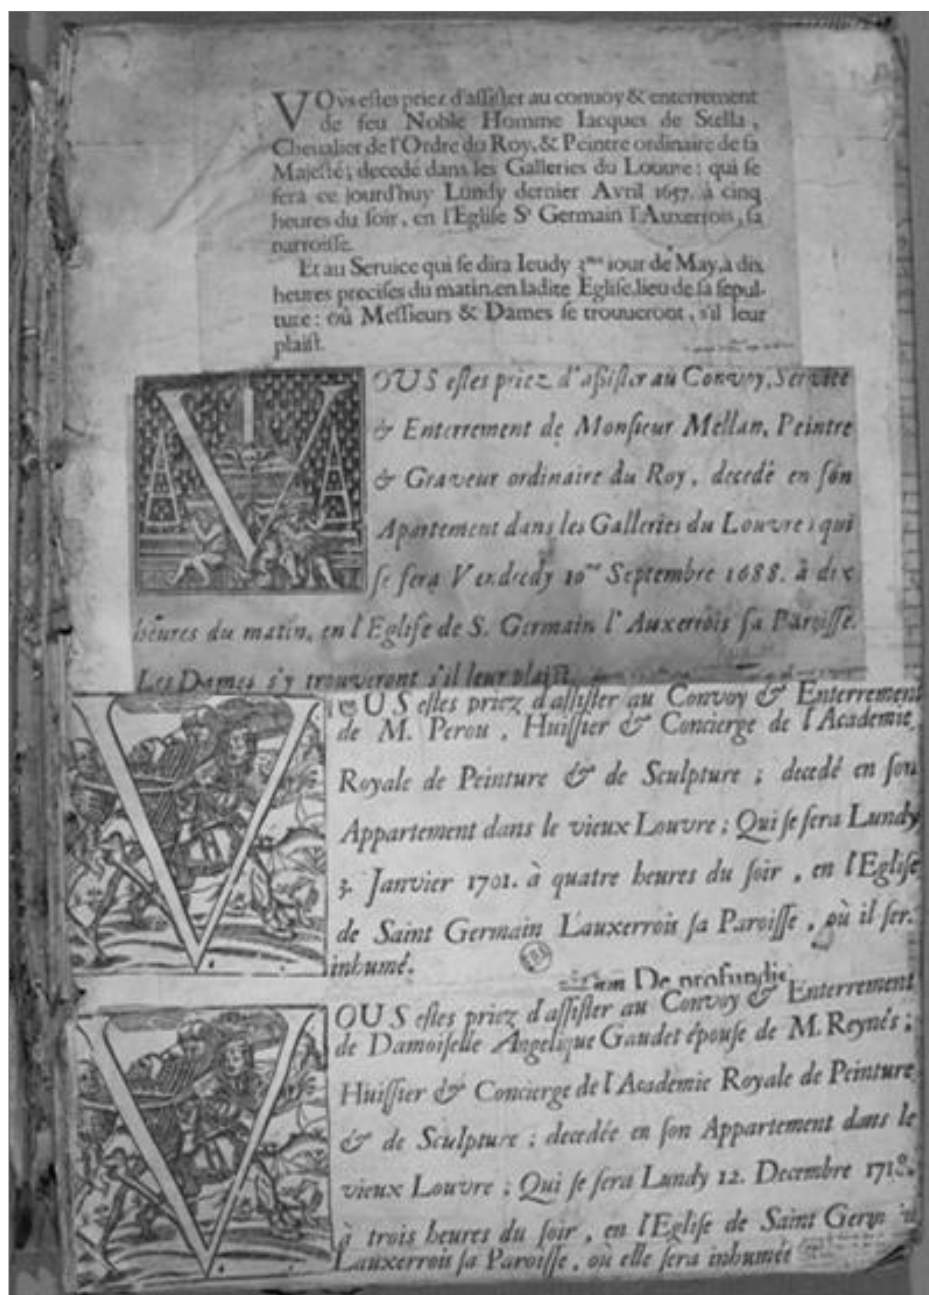 VOvs estes priez d'assister au conuoy & enterrement
de feu Noble Homme Iacques de Stella,
Cheualier de l'Ordre du Roy, & Peintre ordinaire de sa
Majesté; decedé dans les Galleries du Louure: qui se
fera ce jourd'huy Lundy dernier Avril 1657. à cinq
heures du soir, en l'Eglise St Germain l'Auxerrois, sa
parroisse.
Et au Seruice qui se dira Ieudy 3me iour de May, à dix
heures precises du matin, en ladite Eglise, lieu de sa sepul-
ture: où Messieurs & Dames se trouueront, s'il leur
plaist.
VOUS estes priez d'assister au Convoy, Service
& Enterrement de Monsieur Mellan, Peintre
& Graveur ordinaire du Roy, decedé en son
Apartement dans les Galleries du Louvre; qui
se fera Vendredy 10me Septembre 1688. à dix
heures du matin, en l'Eglise de S. Germain l'Auxerrois sa Paroisse.
Les Dames s'y trouveront s'il leur plaist.
VOUS estes priez d'assister au Convoy & Enterrement
de M. Perou, Huissier & Concierge de l'Academie
Royale de Peinture & de Sculpture; decedé en son
Appartement dans le vieux Louvre; Qui se fera Lundy
3. Janvier 1701. à quatre heures du soir, en l'Eglise
de Saint Germain Lauxerrois sa Paroisse, où il ser.
inhumé.
De profundis
VOUS estes priez d'assister au Convoy & Enterrement
de Damoiselle Angelique Gaudet épouse de M. Reynés;
Huissier & Concierge de l'Academie Royale de Peinture
& de Sculpture; decedée en son Appartement dans le
vieux Louvre; Qui se fera Lundy 12. Decembre 1718.
à trois heures du soir, en l'Eglise de Saint Germain
Lauxerrois sa Paroisse, où elle sera inhumée